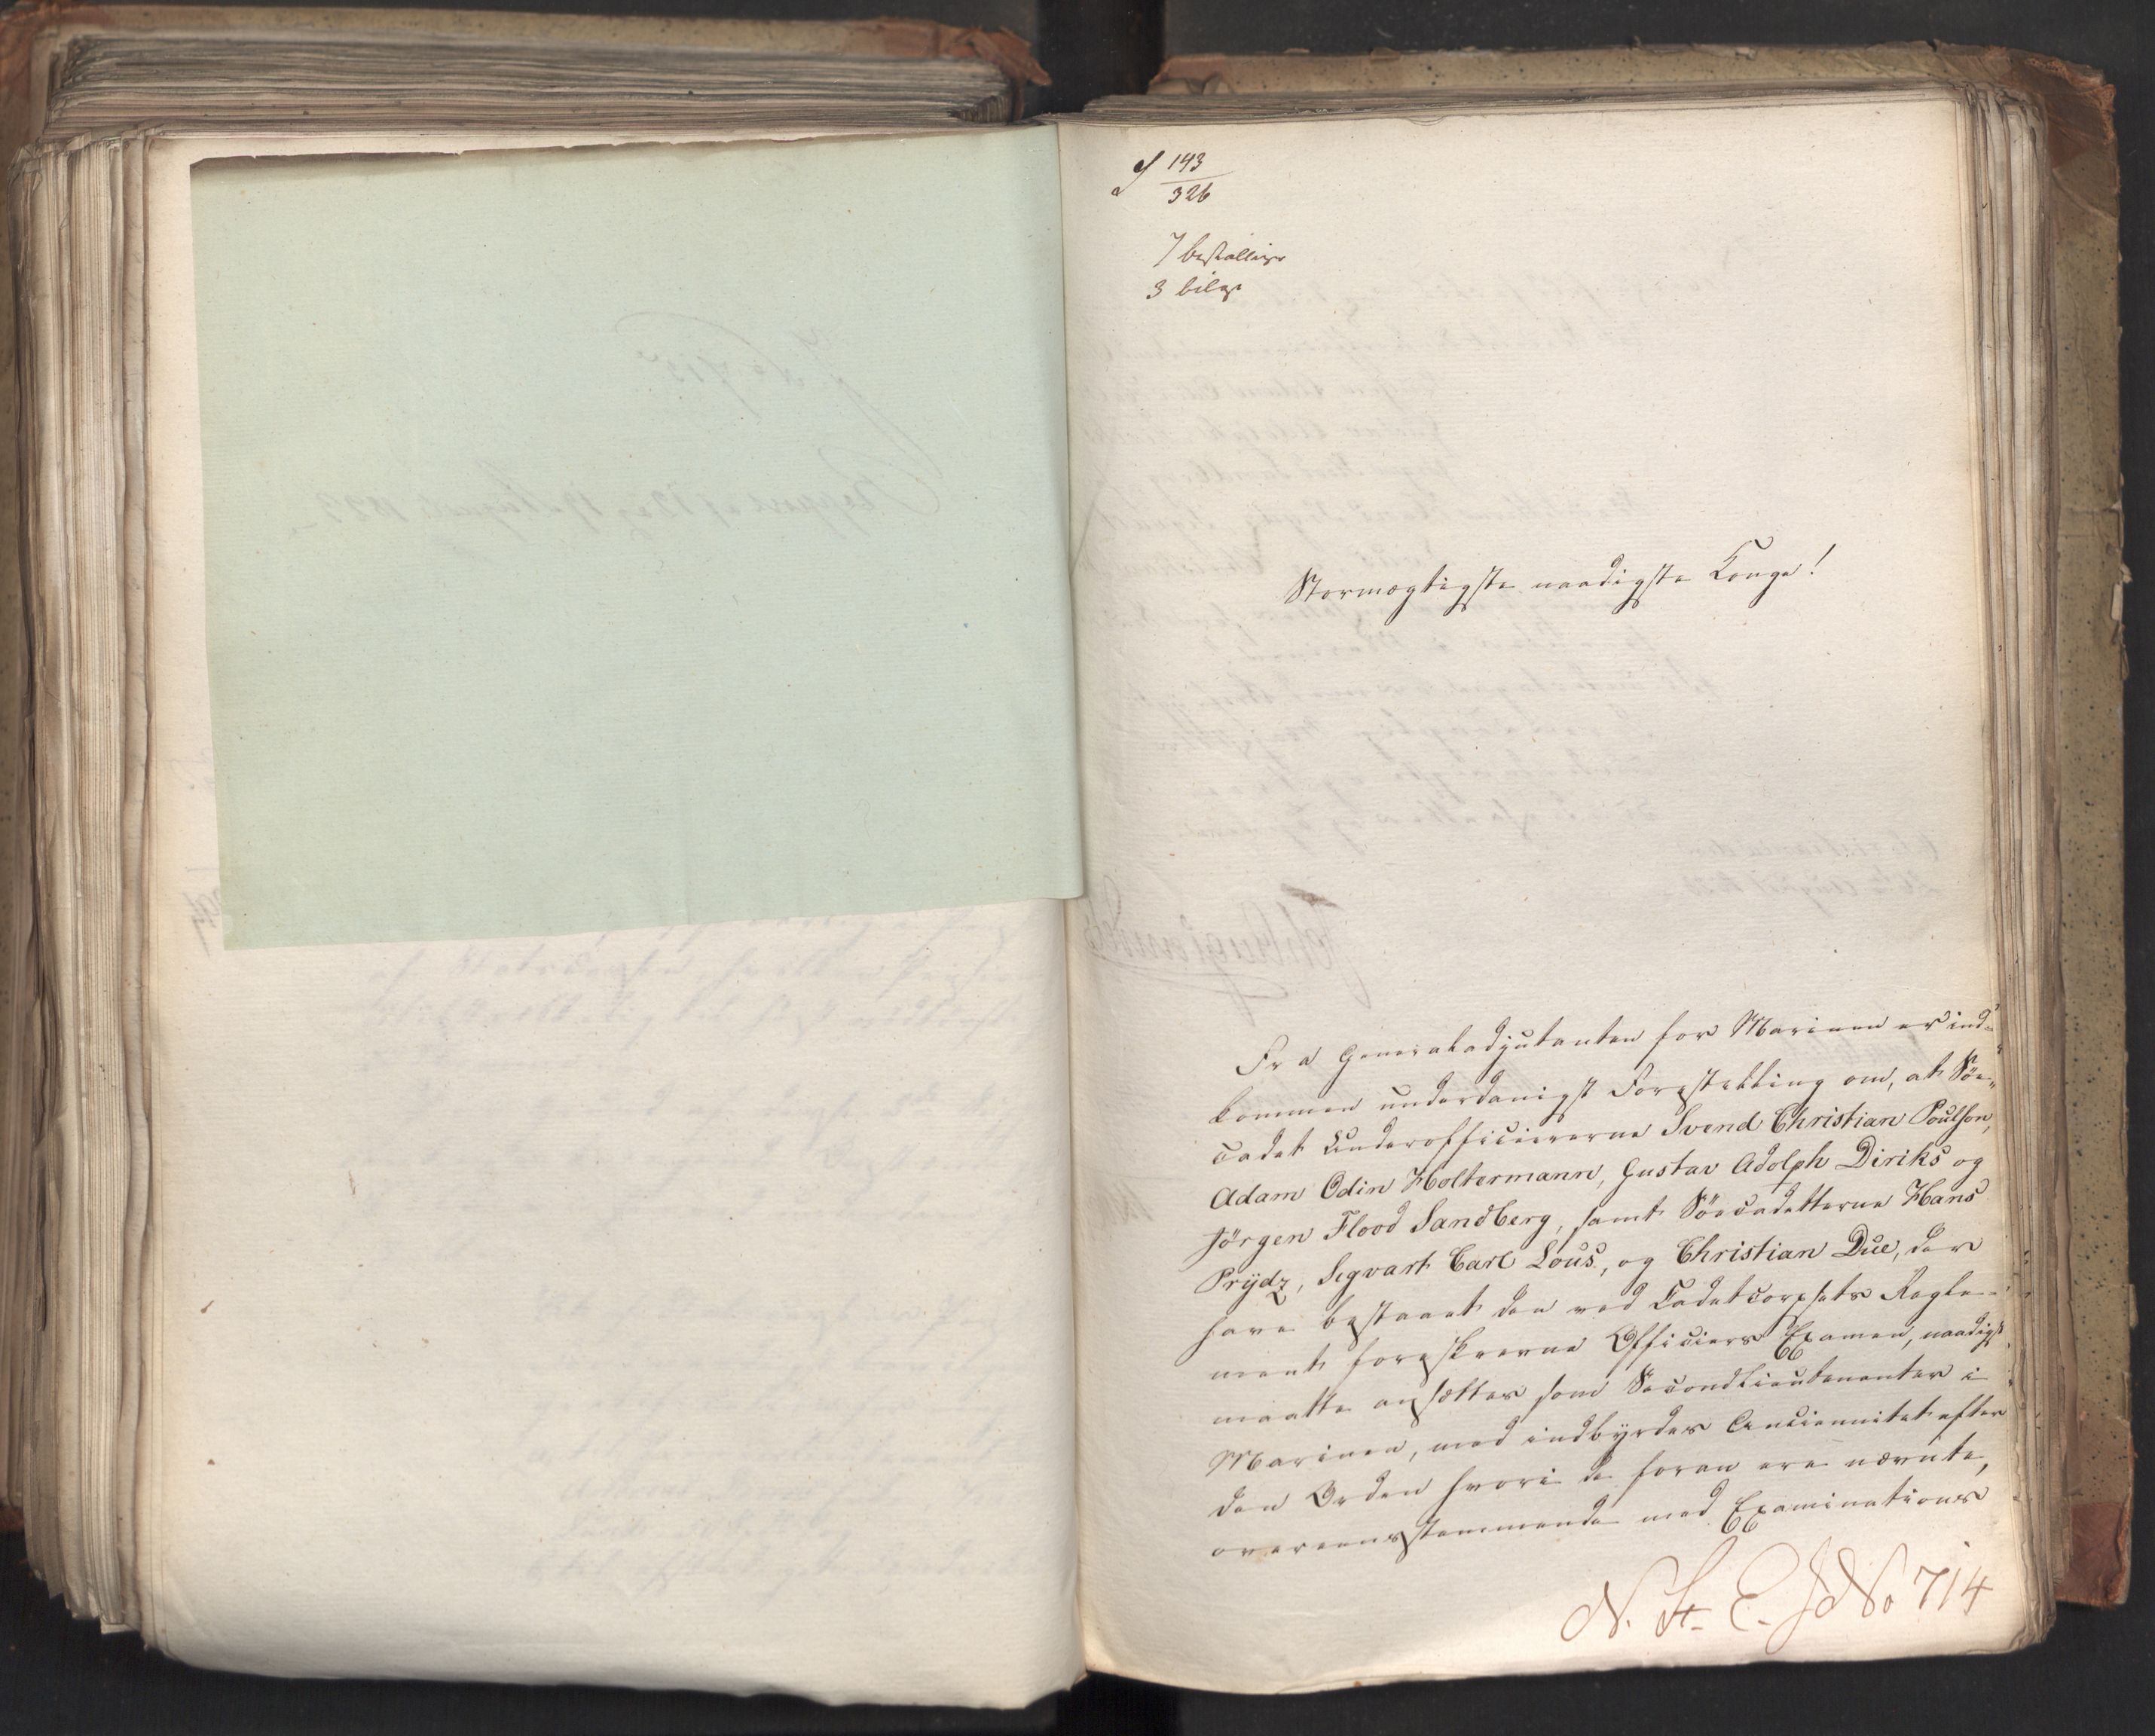 J 143
326
7 bestallinger
3 bilage
Stormægtigste naadigste Konge!
Fra Generaladjutanten for Marinen er ind-
kommen underdanigst Forestilling om, at Söe-
cadet Underofficiererne Svend Christian Poulson,
Adam Odin Holtermann, Gustav Adolph Diriks og
Jörgen Flood Sandberg, samt Söecadetterne Hans
Prÿdz, Segvart Carl Lous, og Christian Due, der
have bestaaet den ved Cadetcorpsets Regle-
ment foreskrevne Officiers Examen, naadigst
maatte ansættes som Secondlieutenanter i
Marinen, med indbÿrdes Anciennitet efter
den Orden hvori de foran ere nævnte,
overeensstemmende med Examinations
N. St. E. Jd No 714